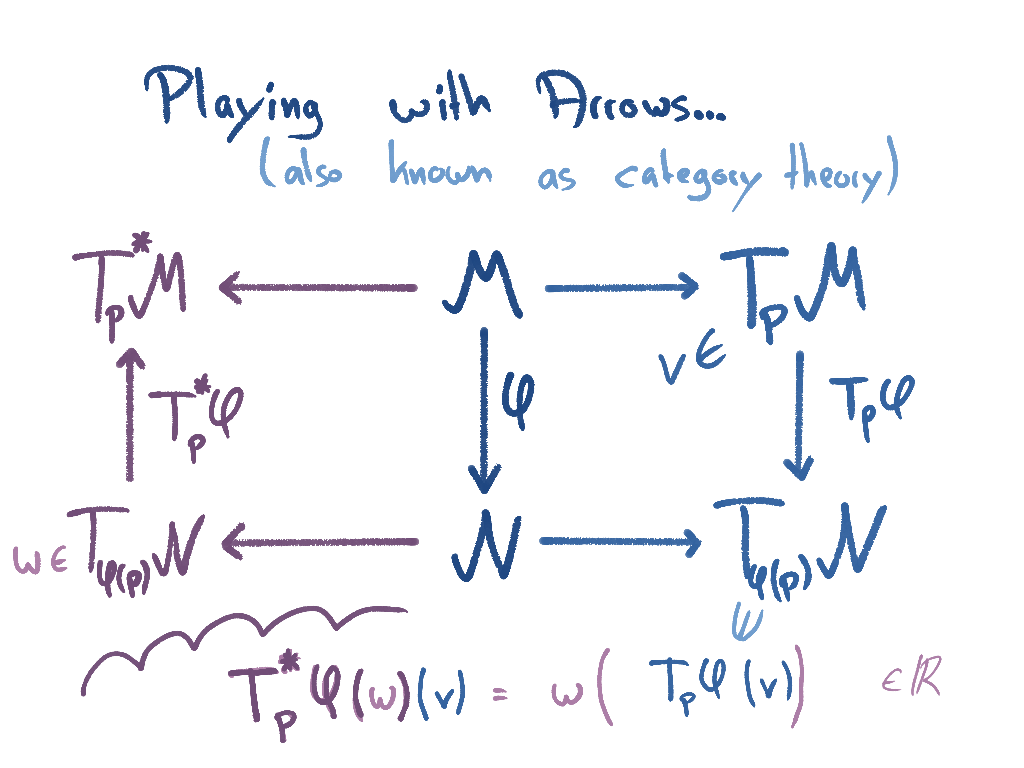 Playing with Arrows...
(also known as category theory)
T*ₚM ← M → TₚM
v ∈
T*ₚφ φ Tₚφ
w ∈ T_φ(p)N ← N → T_φ(p)N
ψ
T*ₚφ(w)(v) = w(Tₚφ(v)) ∈ ℝ